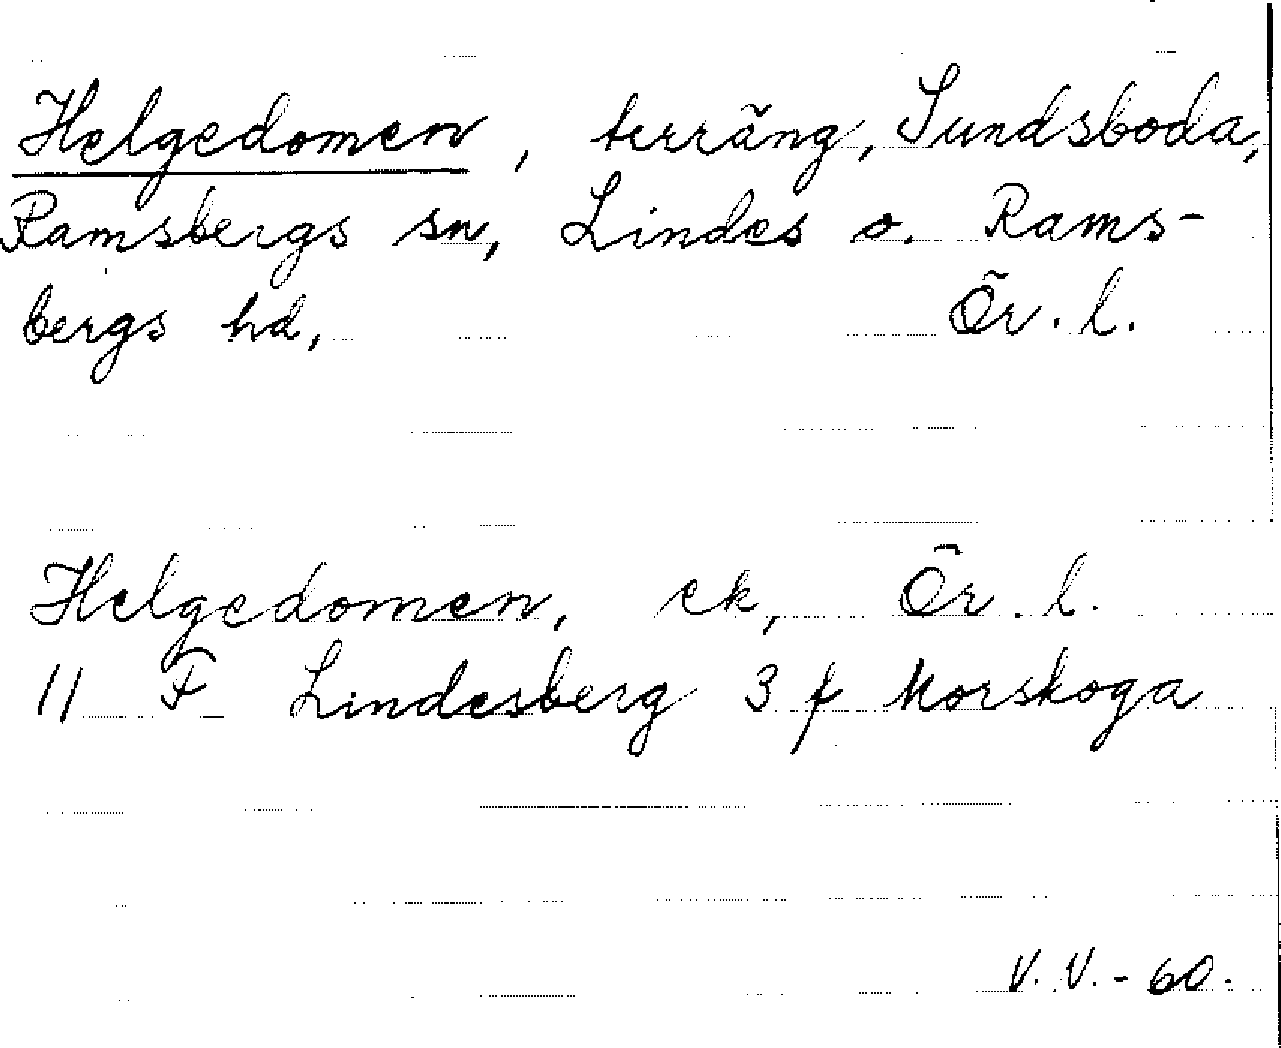 Helgedomen, terräng, Sundsboda,
Ramsbergs sn, Lindes o. Rams-
bergs hd, Ör. l.
Helgedomen, ek, Ör. l.
11 F Lindesberg 3 f Morskoga
V.V.-60.